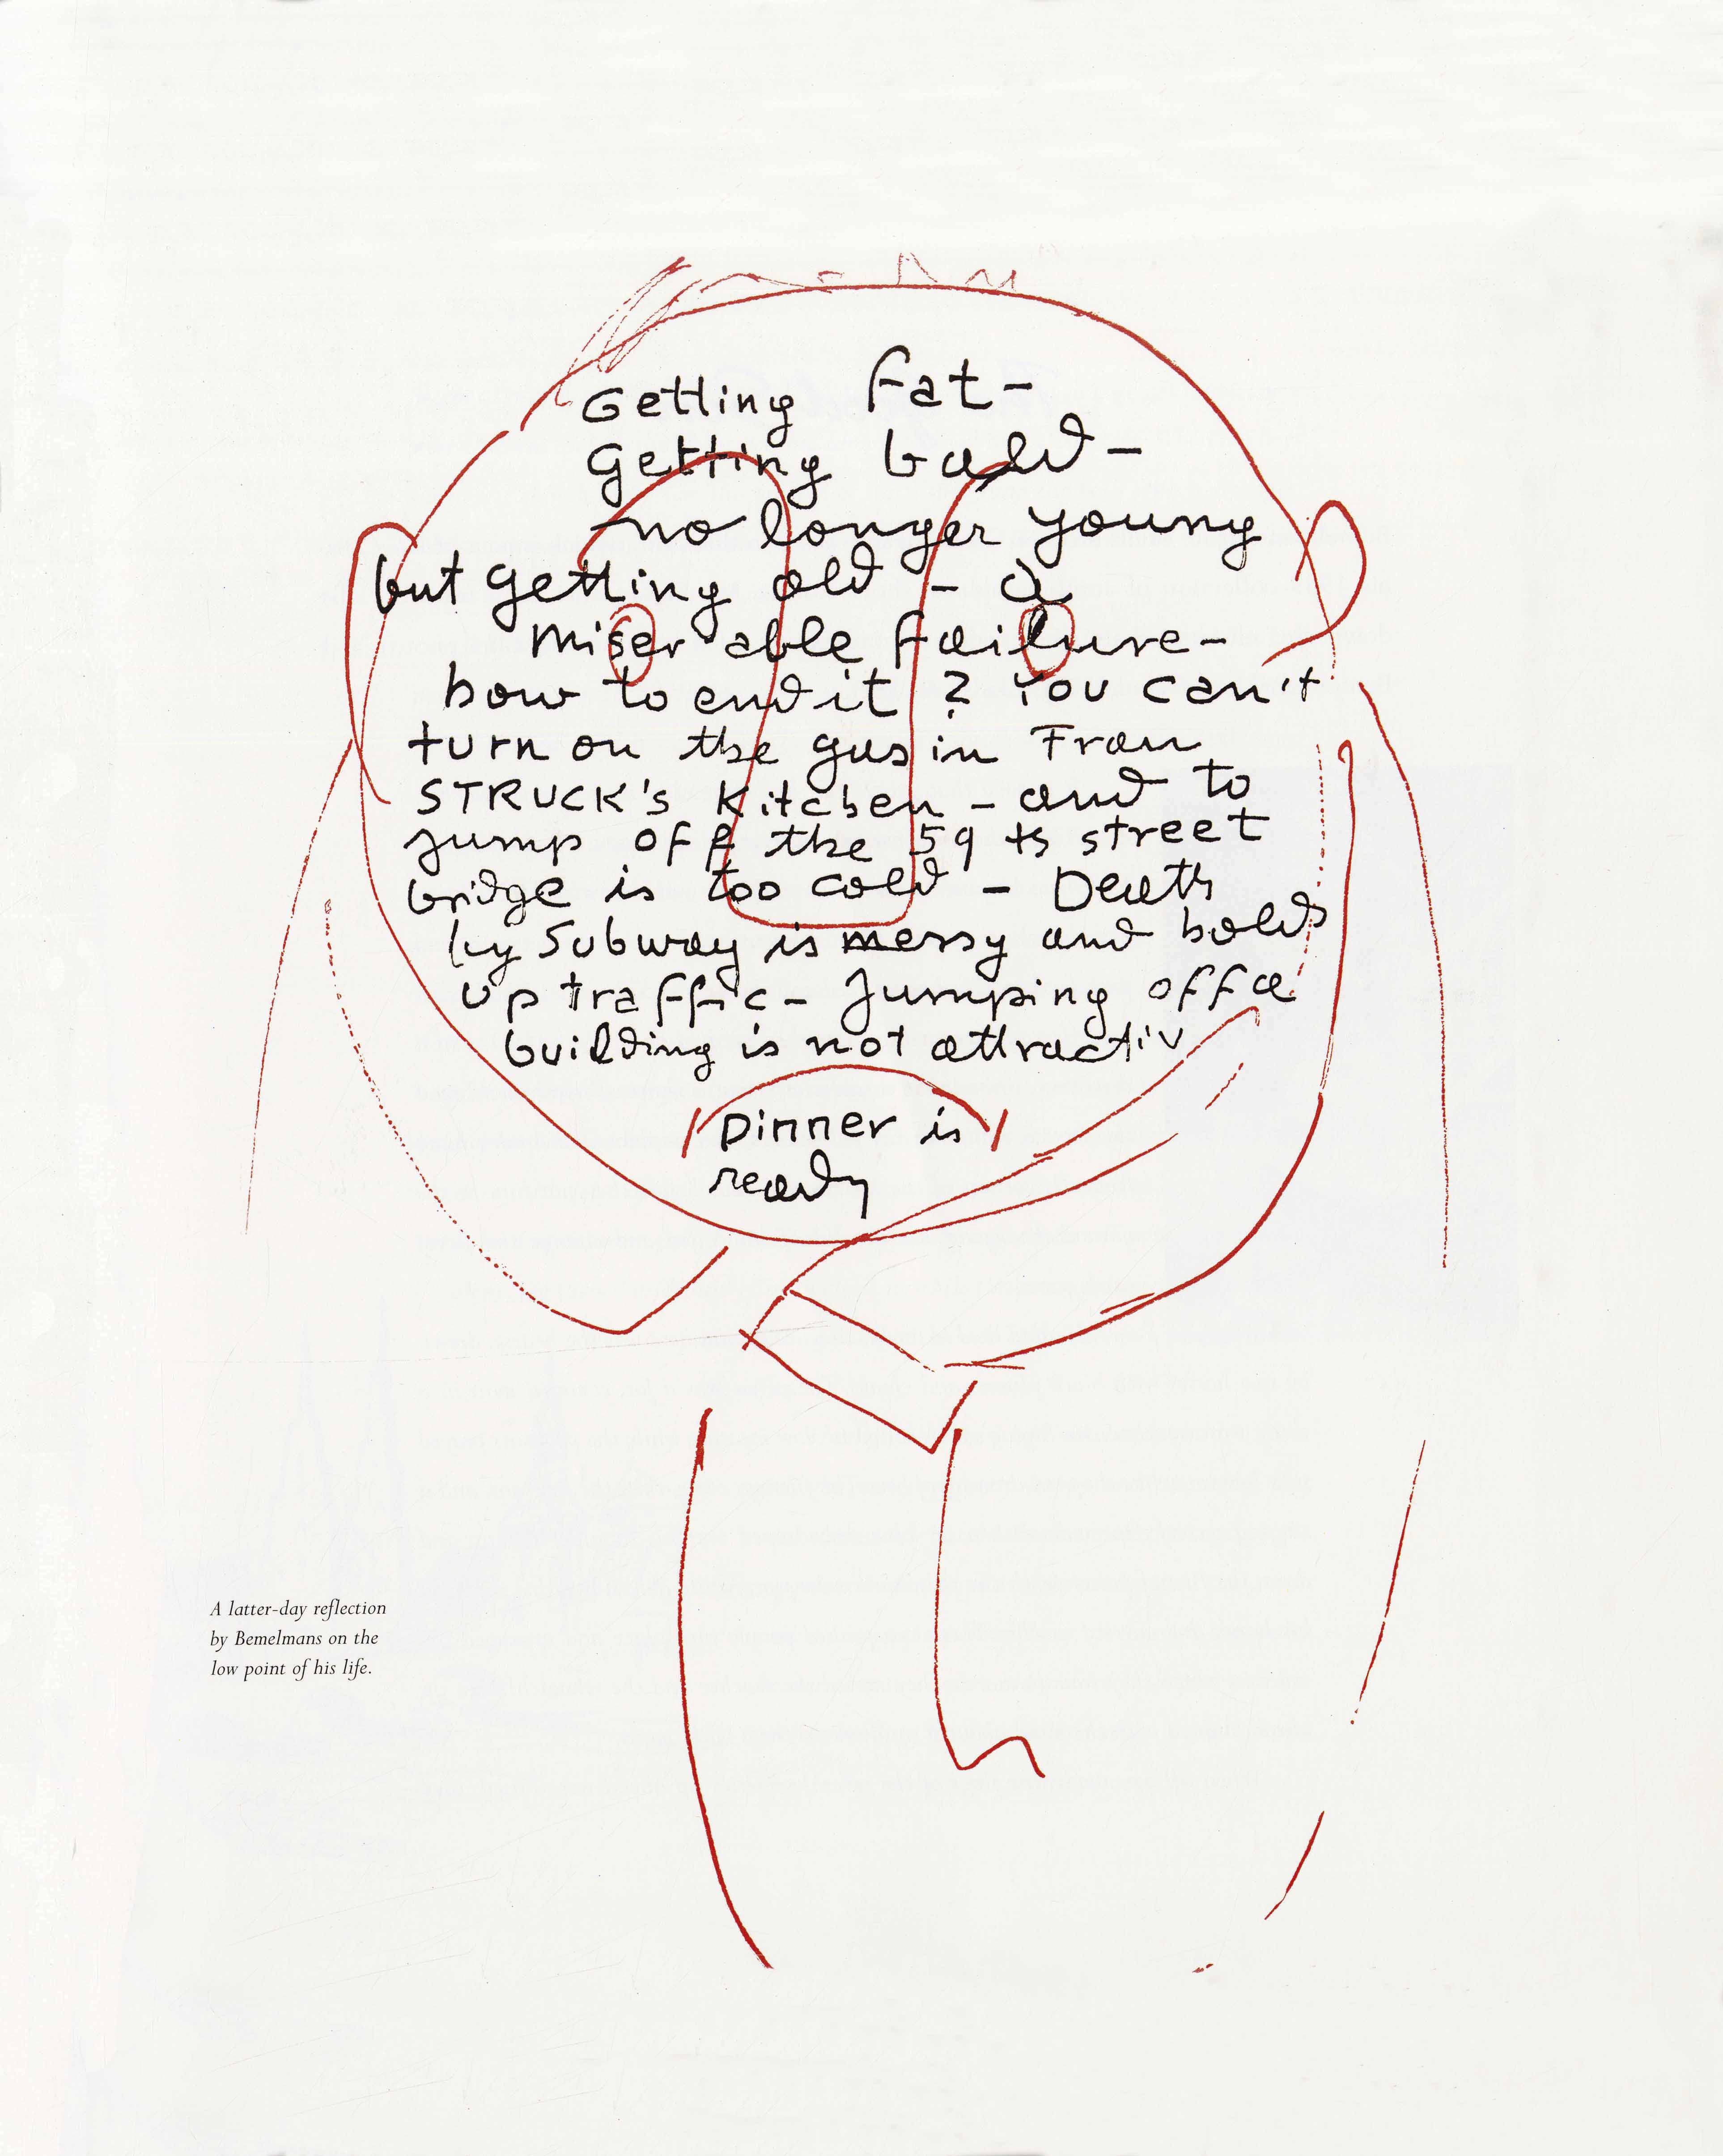 Getting fat -
Getting bald -
no longer young
but getting old - a
miserable failure -
how to end it ? You can't
turn on the gas in Frau
STRUCK's Kitchen - and to
jump off the 59 th street
bridge is too cold - Death
by Subway is messy and holds
up traffic - Jumping off a
building is not attractiv
Dinner is
ready
A latter-day reflection
by Bemelmans on the
low point of his life.